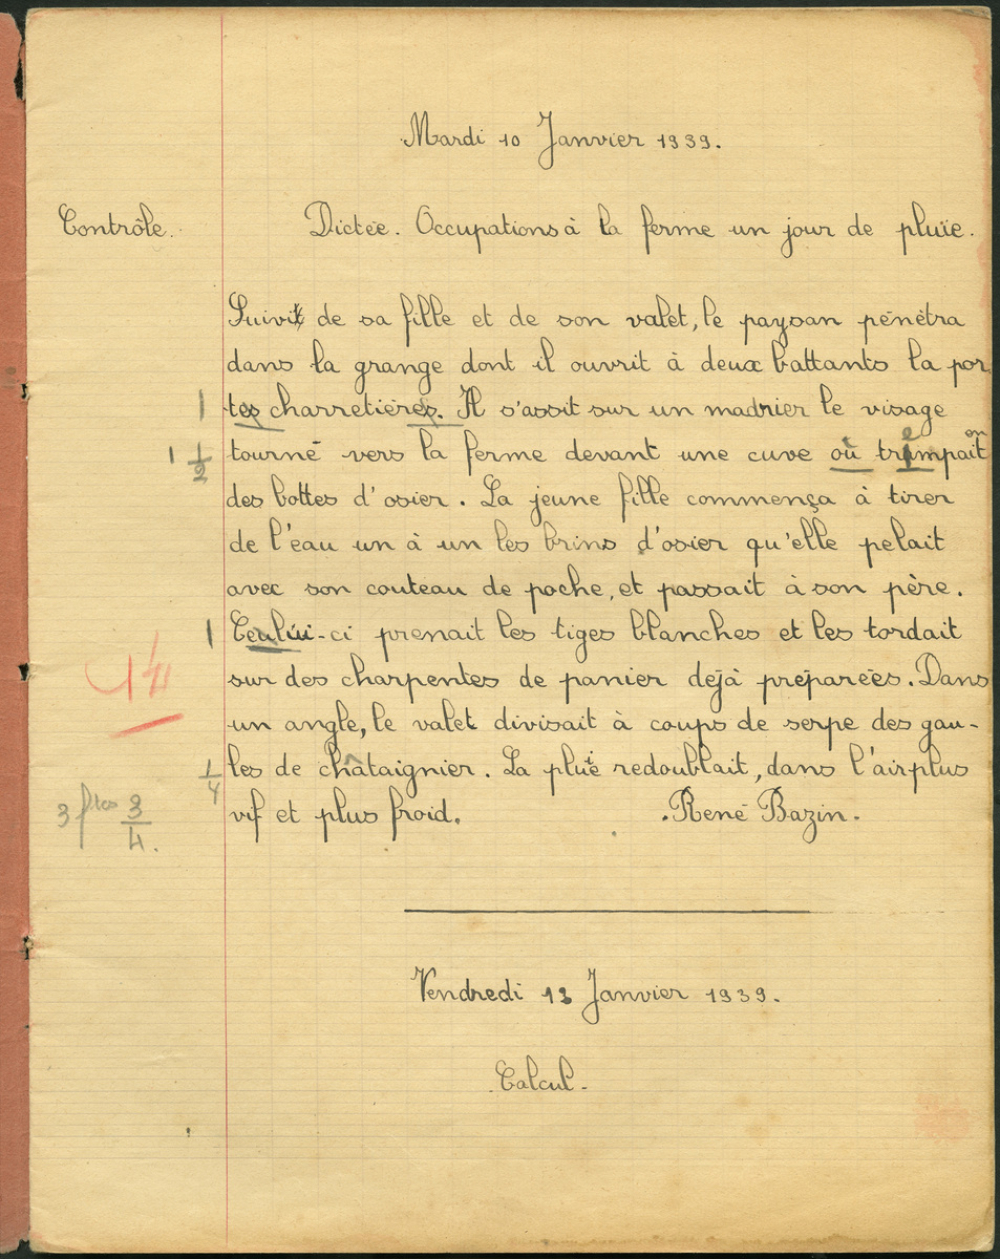 Mardi 10 Janvier 1939.
Contrôle. Dictée. Occupations à la ferme un jour de pluie.
Suivi de sa fille et de son valet, le paysan pénétra
dans la grange dont il ouvrit à deux battants la por
1 tes charretières. Il s'assit sur un madrier le visage
1 1/2 tourné vers la ferme devant une cuve où trempait
des bottes d'osier. La jeune fille commença à tirer
de l'eau un à un les brins d'osier qu'elle pelait
avec son couteau de poche, et passait à son père.
1 Ceului-ci prenait les tiges blanches et les tordait
14 sur des charpentes de panier déjà préparées. Dans
un angle, le valet divisait à coups de serpe des gau-
1/4 les de châtaignier. La pluie redoublait, dans l'air plus
3 ftes 3/4. vif et plus froid. René Bazin.
Vendredi 13 Janvier 1939.
Calcul.